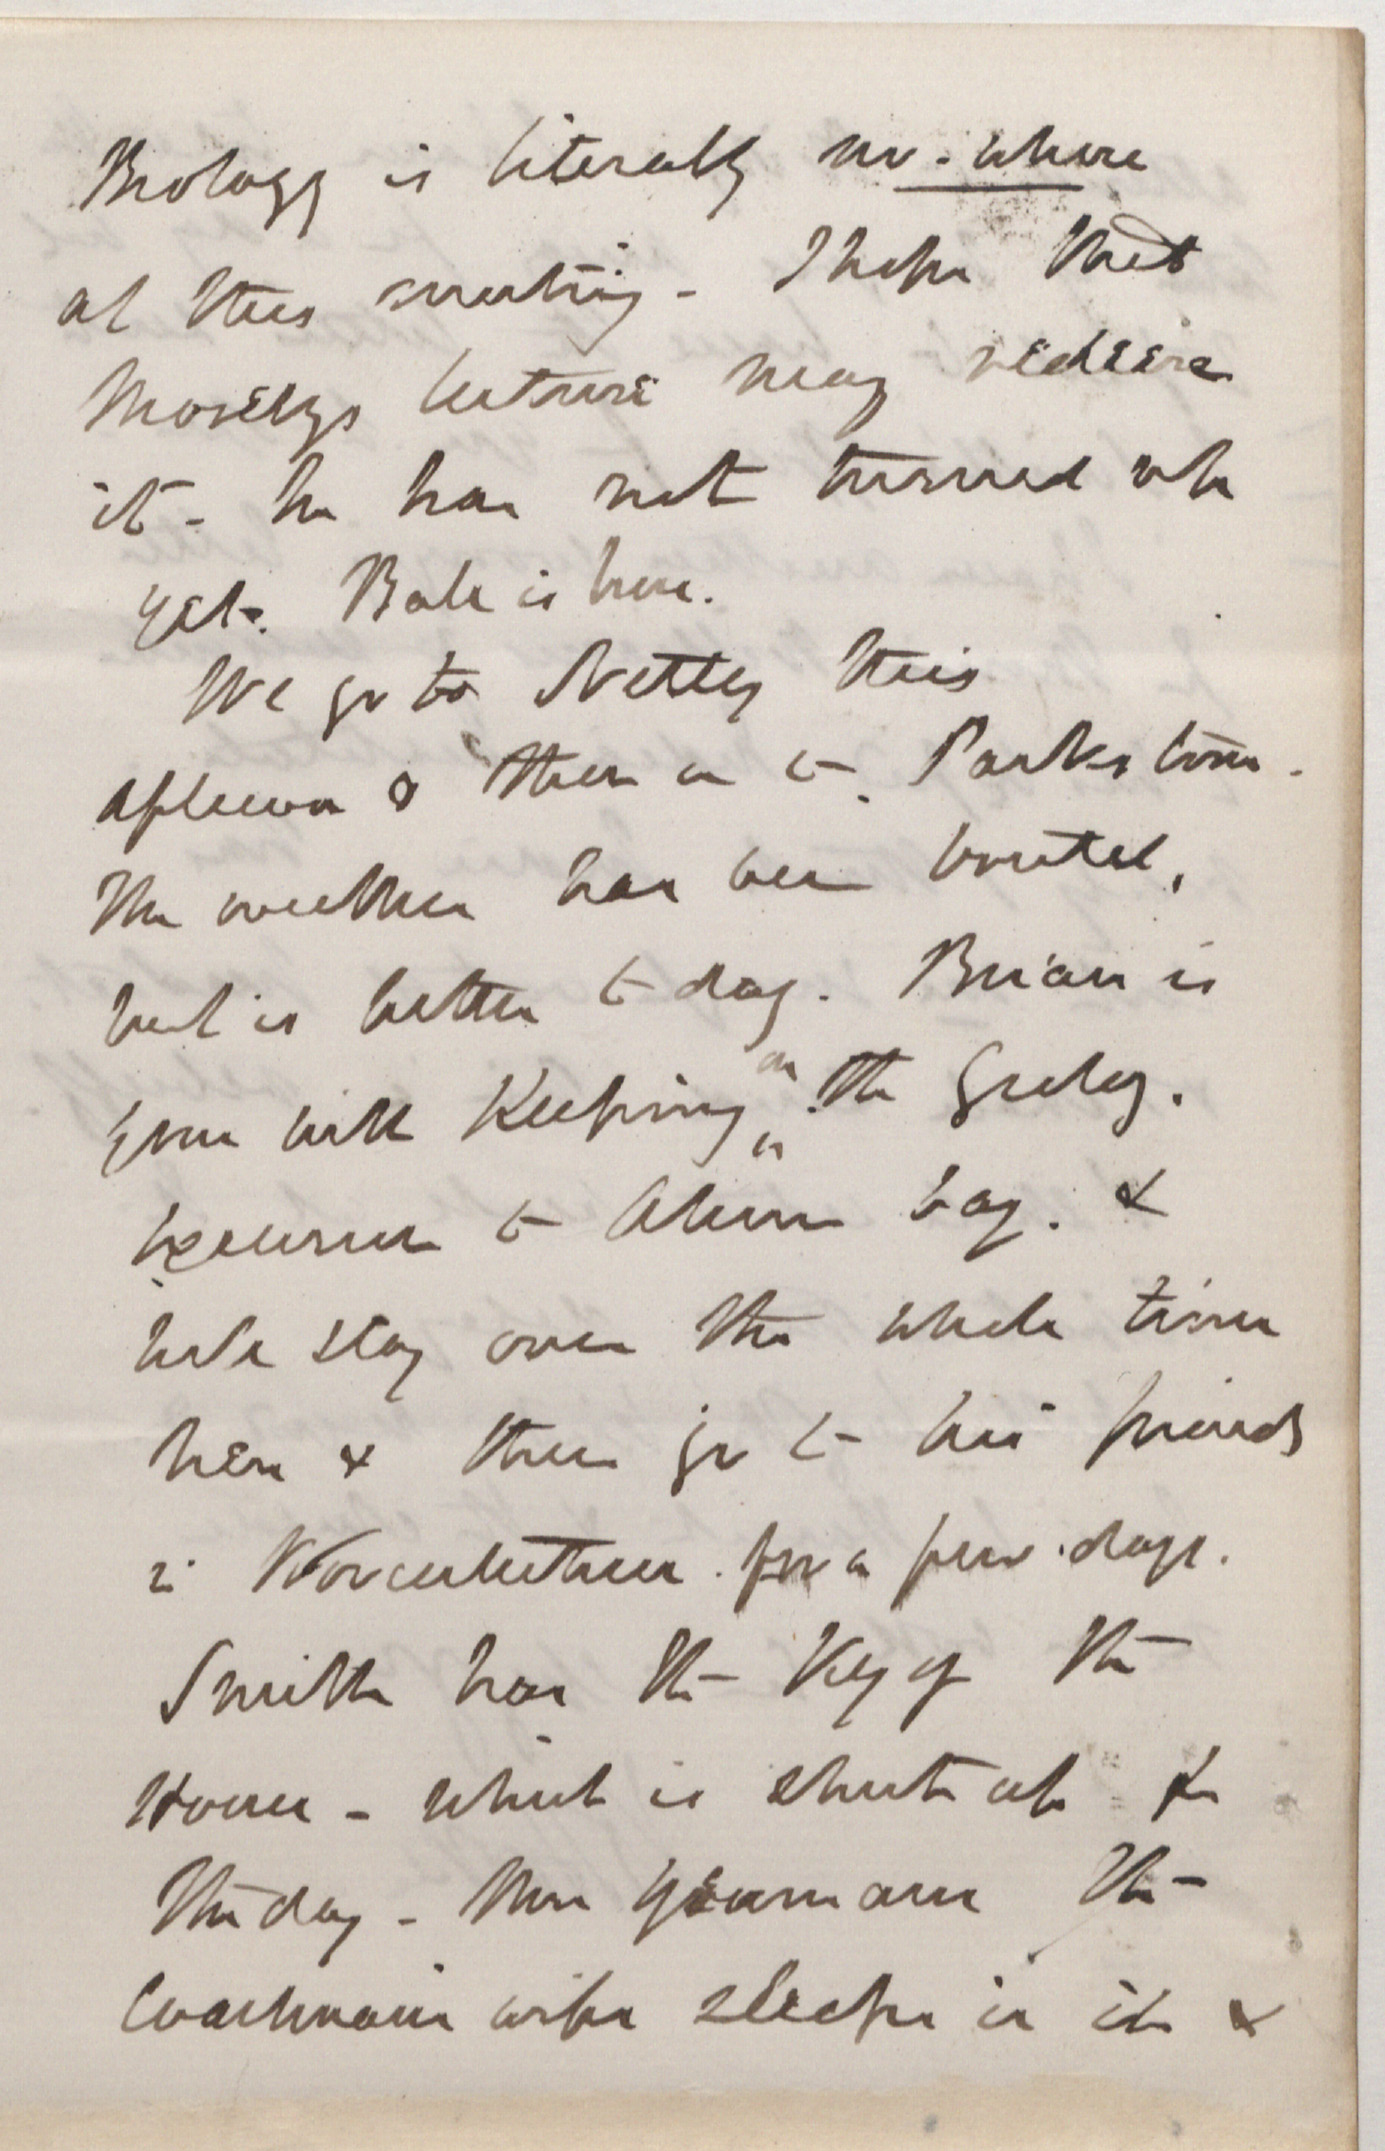 Biology is literally no-where
at this meeting - I hope that
Moselys lecture may redeem
it - he has not turned up
yet. Bale is here.
We go to Netley this
afternoon & then on to Parkstone.
The weather has been brutal,
but is better to day. Brian is
gone with Keeping on the Geolog.
Excursion to Alum bay. &
he'll stay over the whole time
here & then go to his friends
in Worcestershire for a few days.
Smith has the Key of the
House - which is shut up for
the day - Mrs Yearman the
Coachmans wife sleeps in it &